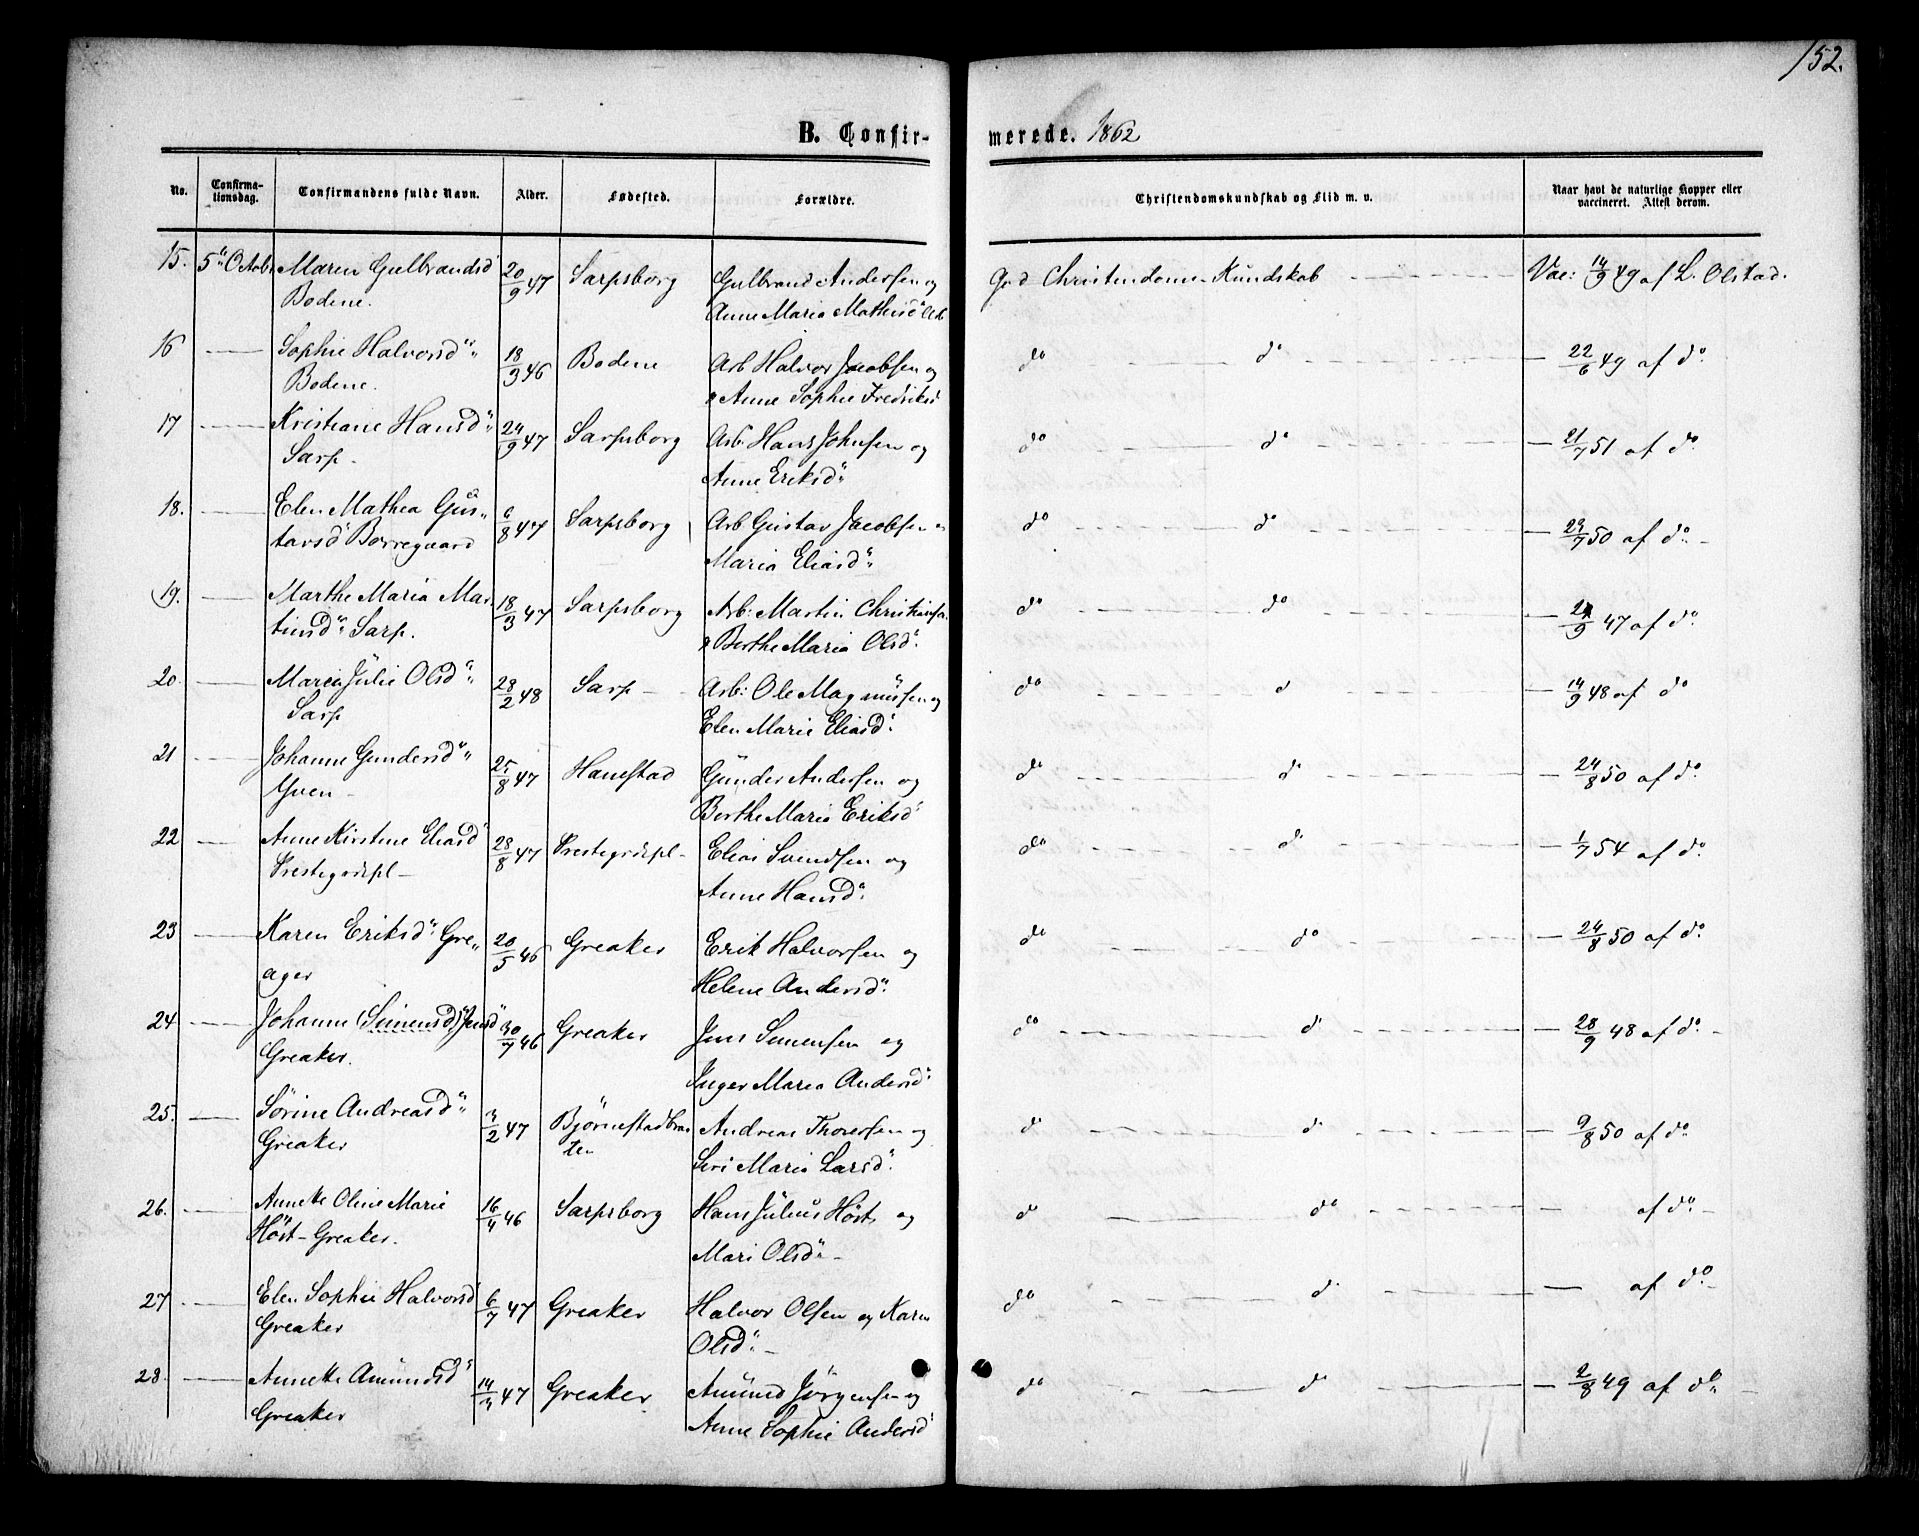 152.
B. Confirmerede. 1862
No. Confirmationsdag. Confirmandens fulde Navn. Alder. Fødested. Forældre. Christendomskundskab og Flid m. v. Naar havt de naturlige Kopper eller vaccineret. Attest derom.
15. 5" Octobr Maren Gulbrandsd 20/9 47 Sarpsborg Gulbrand Andersen og God Christendoms-Kundskab Vac: 14/9 49 af L. Olstad.
Bodene. Anne Maria Mathisd"
16 — Sophie Halvorsd" 18/3 46 Bodene Arb Halvor Jacobsen og do do — 22/6 49 af do
Bodene. Anne Sophie Fredriksd
17 — Kristiane Hansd" 24/9 47 Sarpsborg Arb: Hans Johnsen og do do — 21/7 51 af do
Sarp. Anne Eriksd"
18. — Elen Mathea Gus- 6/8 47 Sarpsborg Arb Gustav Jacobsen do do — 29/7 50 af do
tavsd Borregaard Maria Eliasd"
19. — Marthe Maria Mar- 18/3 47 Sarpsborg Arb: Martin Christiansen do do — /9 47 af do
tinsd" Sarp. & Berthe Maria Olsd"
20. — Maren Julie Olsd" 28/2 48 Sarp Arb: Ole Magnussen og do d — 14/9 48 af do
Sarp Elen Marie Eliasd"
21 — Johanne Gundersd" 25/8 47 Hannestad Gunder Andersen og do d — 24/8 50 af do
Yven Berthe Maria Eriksd"
22 — Anne Kirstine Eliasd 28/8 47 Prestegrdspl- Elias Svendsen og do d — 1/7 54 af do
Prestegrdspl- Anne Hansd"
23 — Karen Eriksd" Gre- 20/5 46 Greaker Erik Halvorsen og do do — 24/8 50 af do
ager Helene Andersd"
24 — Johanne (Simensd) Jensd" 30/7 46 Greaker Jens Simensen og do d — 28/9 48 af do
Greaker. Inger Maria Andersd"
25. — Sørine Andreasd" 3/2 47 Bjørnestadbra- Andreas Thoresen og d d — 9/8 50 af do
Greaker ten Siri Maria Larsd"
26. — Annette Oline Marie 16/4 46 Sarpsborg Hans Julius Høst og do do — af do
Høst- Greaker. Mari Olsd"
27 — Elen Sophie Halvorsd 6/7 47 Greaker Halvor Olsen og Karen do d — af do
Greaker Olsd"
28. — Annette Amundsd" 14/3 47 Greaker Amund Jørgensen og do d — 2/8 49 af do
Greaker Anne Sophie Andersd